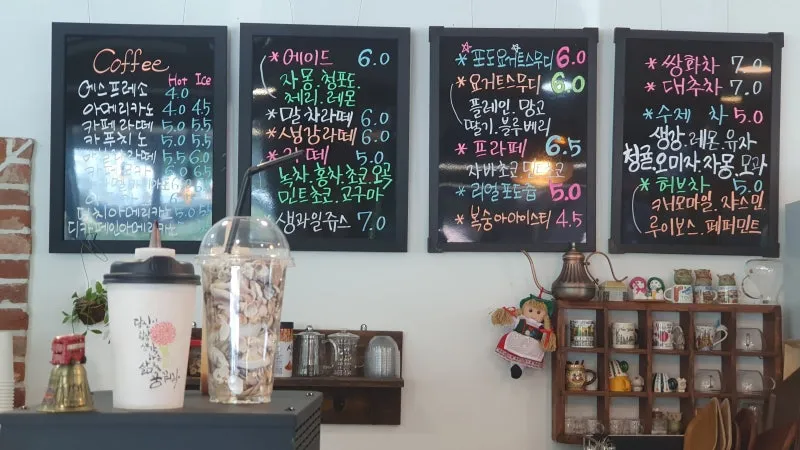 Coffee
Hot Ice
에스프레소 4.0
아메리카노 4.0 4.5
카페라떼 5.0 5.5
카푸치노 5.0 5.5
5.5 6.0
더치아메리카노 5.0 5.5
디카페인아메리카노
*에이드 6.0
자몽.청포도
체리.레몬
*말차라떼 6.0
*생강라떼 6.0
5.0
녹차.홍차.초코.오곡
민트초코.고구마
생과일쥬스 7.0
*포도요거트스무디 6.0
*요거트스무디 6.0
플레인.망고
딸기.블루베리
*프라페 6.5
자바초코
*리얼포도즙 5.0
*복숭아아이스티 4.5
*쌍화차 7.0
*대추차 7.0
*수제 차 5.0
생강.레몬.유자
청귤.오미자.자몽.모과
*허브차 5.0
캐모마일.쟈스민.
루이보스.페퍼민트